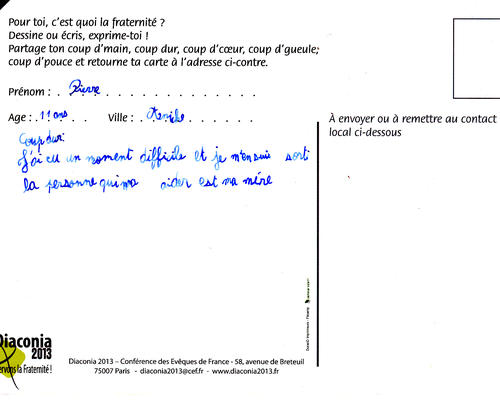 Pour toi, c'est quoi la fraternité ?
Dessine ou écris, exprime-toi !
Partage ton coup d'main, coup dur, coup d'cœur, coup d'gueule;
coup d'pouce et retourne ta carte à l'adresse ci-contre.
Prénom : Pierre
Age : 11 ans Ville :
À envoyer ou à remettre au contact
local ci-dessous
Coup dur:
J'ai eu un moment difficile et je m'en suis sorti
la personne qui ma aider est ma mére
Diaconia
2013
ervons la Fraternité !
Diaconia 2013 – Conférence des Evêques de France - 58, avenue de Breteuil
75007 Paris - diaconia2013@cef.fr - www.diaconia2013.fr